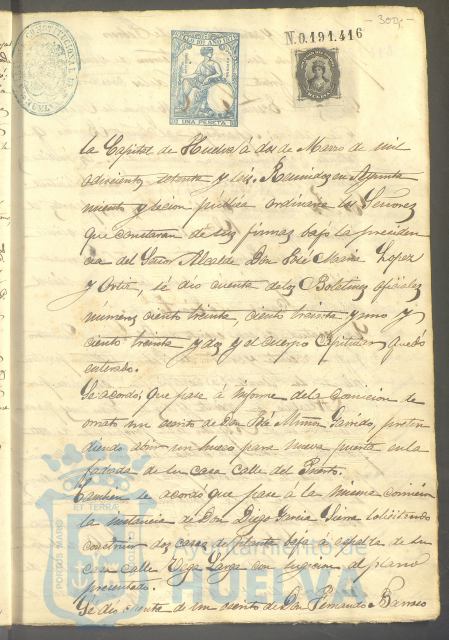 300
N.0.191.416
UNA PESETA
la Capital de Huelva á dos de Marzo de mil
ochocientos setenta y seis. Reunidos en Ayunta
miento y sesion publica ordinaria los Señores
que constaran de sus firmas bajo la presiden
cia del Señor Alcalde Don José Maria Lopez
y Ortiz, se dio cuenta de los Boletines oficiales
números ciento treinta, ciento treinta y uno y
ciento treinta y dos y el cuerpo Capitular quedó
enterado.
Se acordó, que pase á informe de la comision de
ornato un escrito de Don José Muñoz Garrido, preten
diendo abrir un hueco para nueva puerta en la
fachada de su casa calle del Puerto.
Tambien se acordó que pase á la misma comision
la instancia de Don Diego Garcia Sierra solicitando
construir dos casas de planta baja á espalda de su
casa calle Vega Larga con sugecion al plano
presentado.
Se dió cuenta de un escrito de Don Fernando Barroso
Ayuntamiento de
HUELVA
PORTUS MARIS
ET TERRÆ